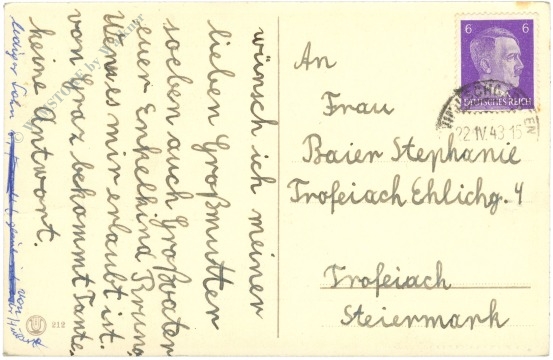 wünsch ich meiner
lieben Großmutter
soeben auch Großvater
euer Enkelkind Bruno
Wenn es mir erlaubt ist.
von Graz bekommt Tante.
keine Antwort.
An
Frau
Baier Stephanie
Trofeiach Ehlichg. 4
Trofeiach
Steiermark
6 6
DEUTSCHES REICH
22.IV.43 16
EN
212
lediger Sohn
von